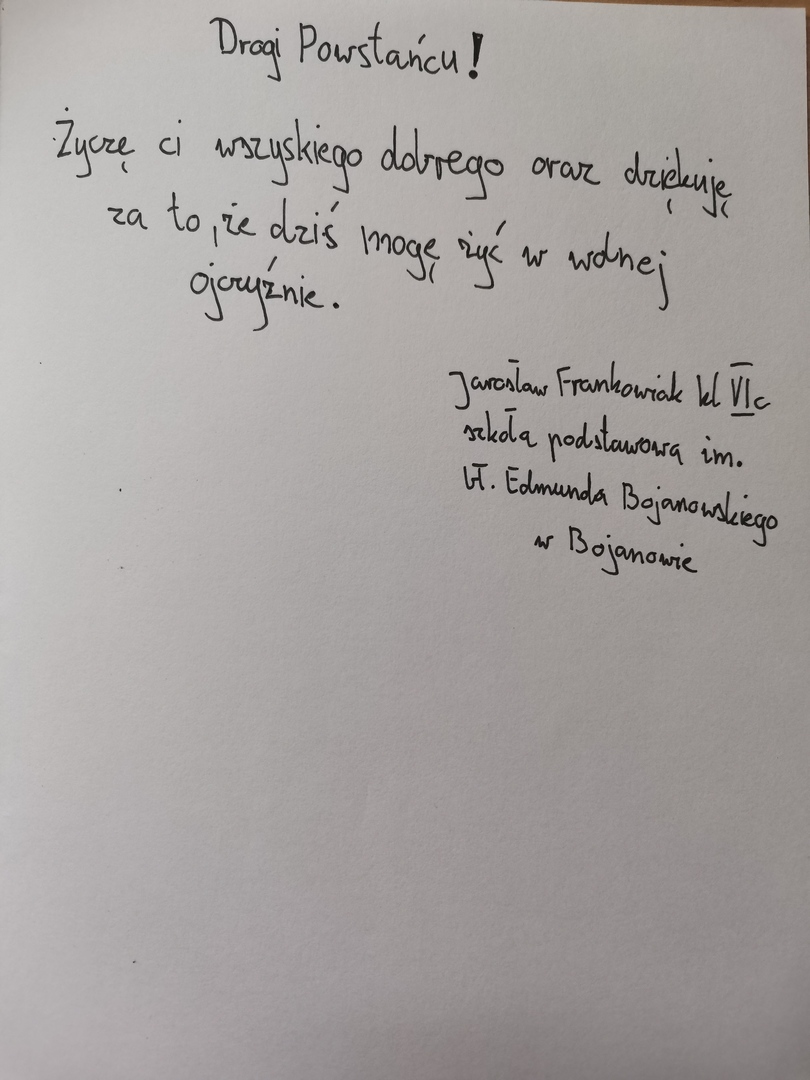 Drogi Powstańcu!
Życzę ci wszyskiego dobrego oraz dziękuję
za to, że dziś mogę żyć w wolnej
ojczyźnie.
Jarosław Frankowiak kl VIc
szkoła podstawowa im.
bł. Edmunda Bojanowskiego
w Bojanowie